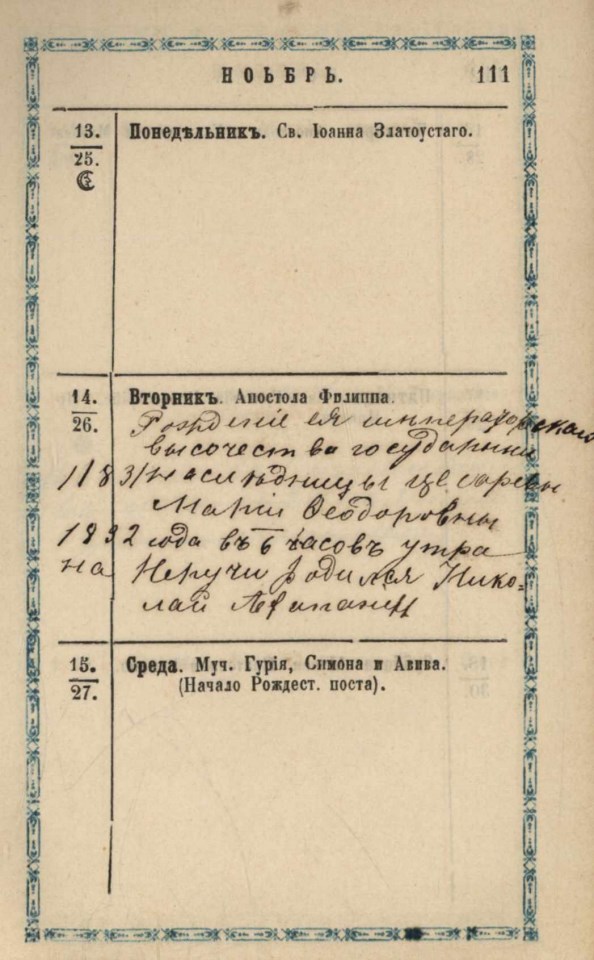 НОЬБРЬ. 111
13. Понедѣльникъ. Св. Іоанна Златоустаго.
25.
14. Вторникъ. Апостола Филиппа.
26. Рожденіе ея императорскаго
высочества государыни
наслѣдницы цесаревны
Маріи Ѳеодоровны
1832 года въ 6 часовъ утра
на Неручи родился Нико-
лай
15. Среда. Муч. Гурія, Симона и Авива.
27. (Начало Рождест. поста).